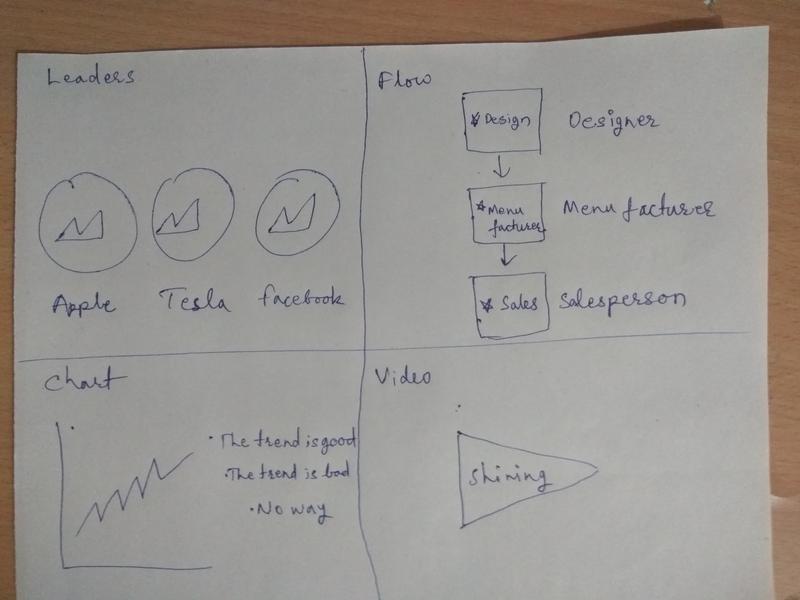 Leaders
Apple
Tesla
facebook
Flow
* Design
Designer
* Menu
facturer
Menu facturer
* Sales
Salesperson
Chart
· The trend is good
· The trend is bad
· No way
Video
Shining